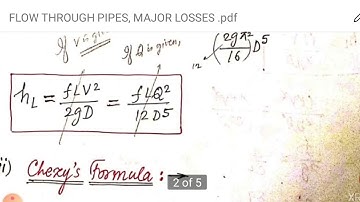 FLOW THROUGH PIPES, MAJOR LOSSES .pdf
If V is given
If Q is given,
12 (2gπ²/16) D⁵
h_L = fLV²/2gD = fLQ²/12D⁵
ii) Chezy's Formula : →
2 of 5